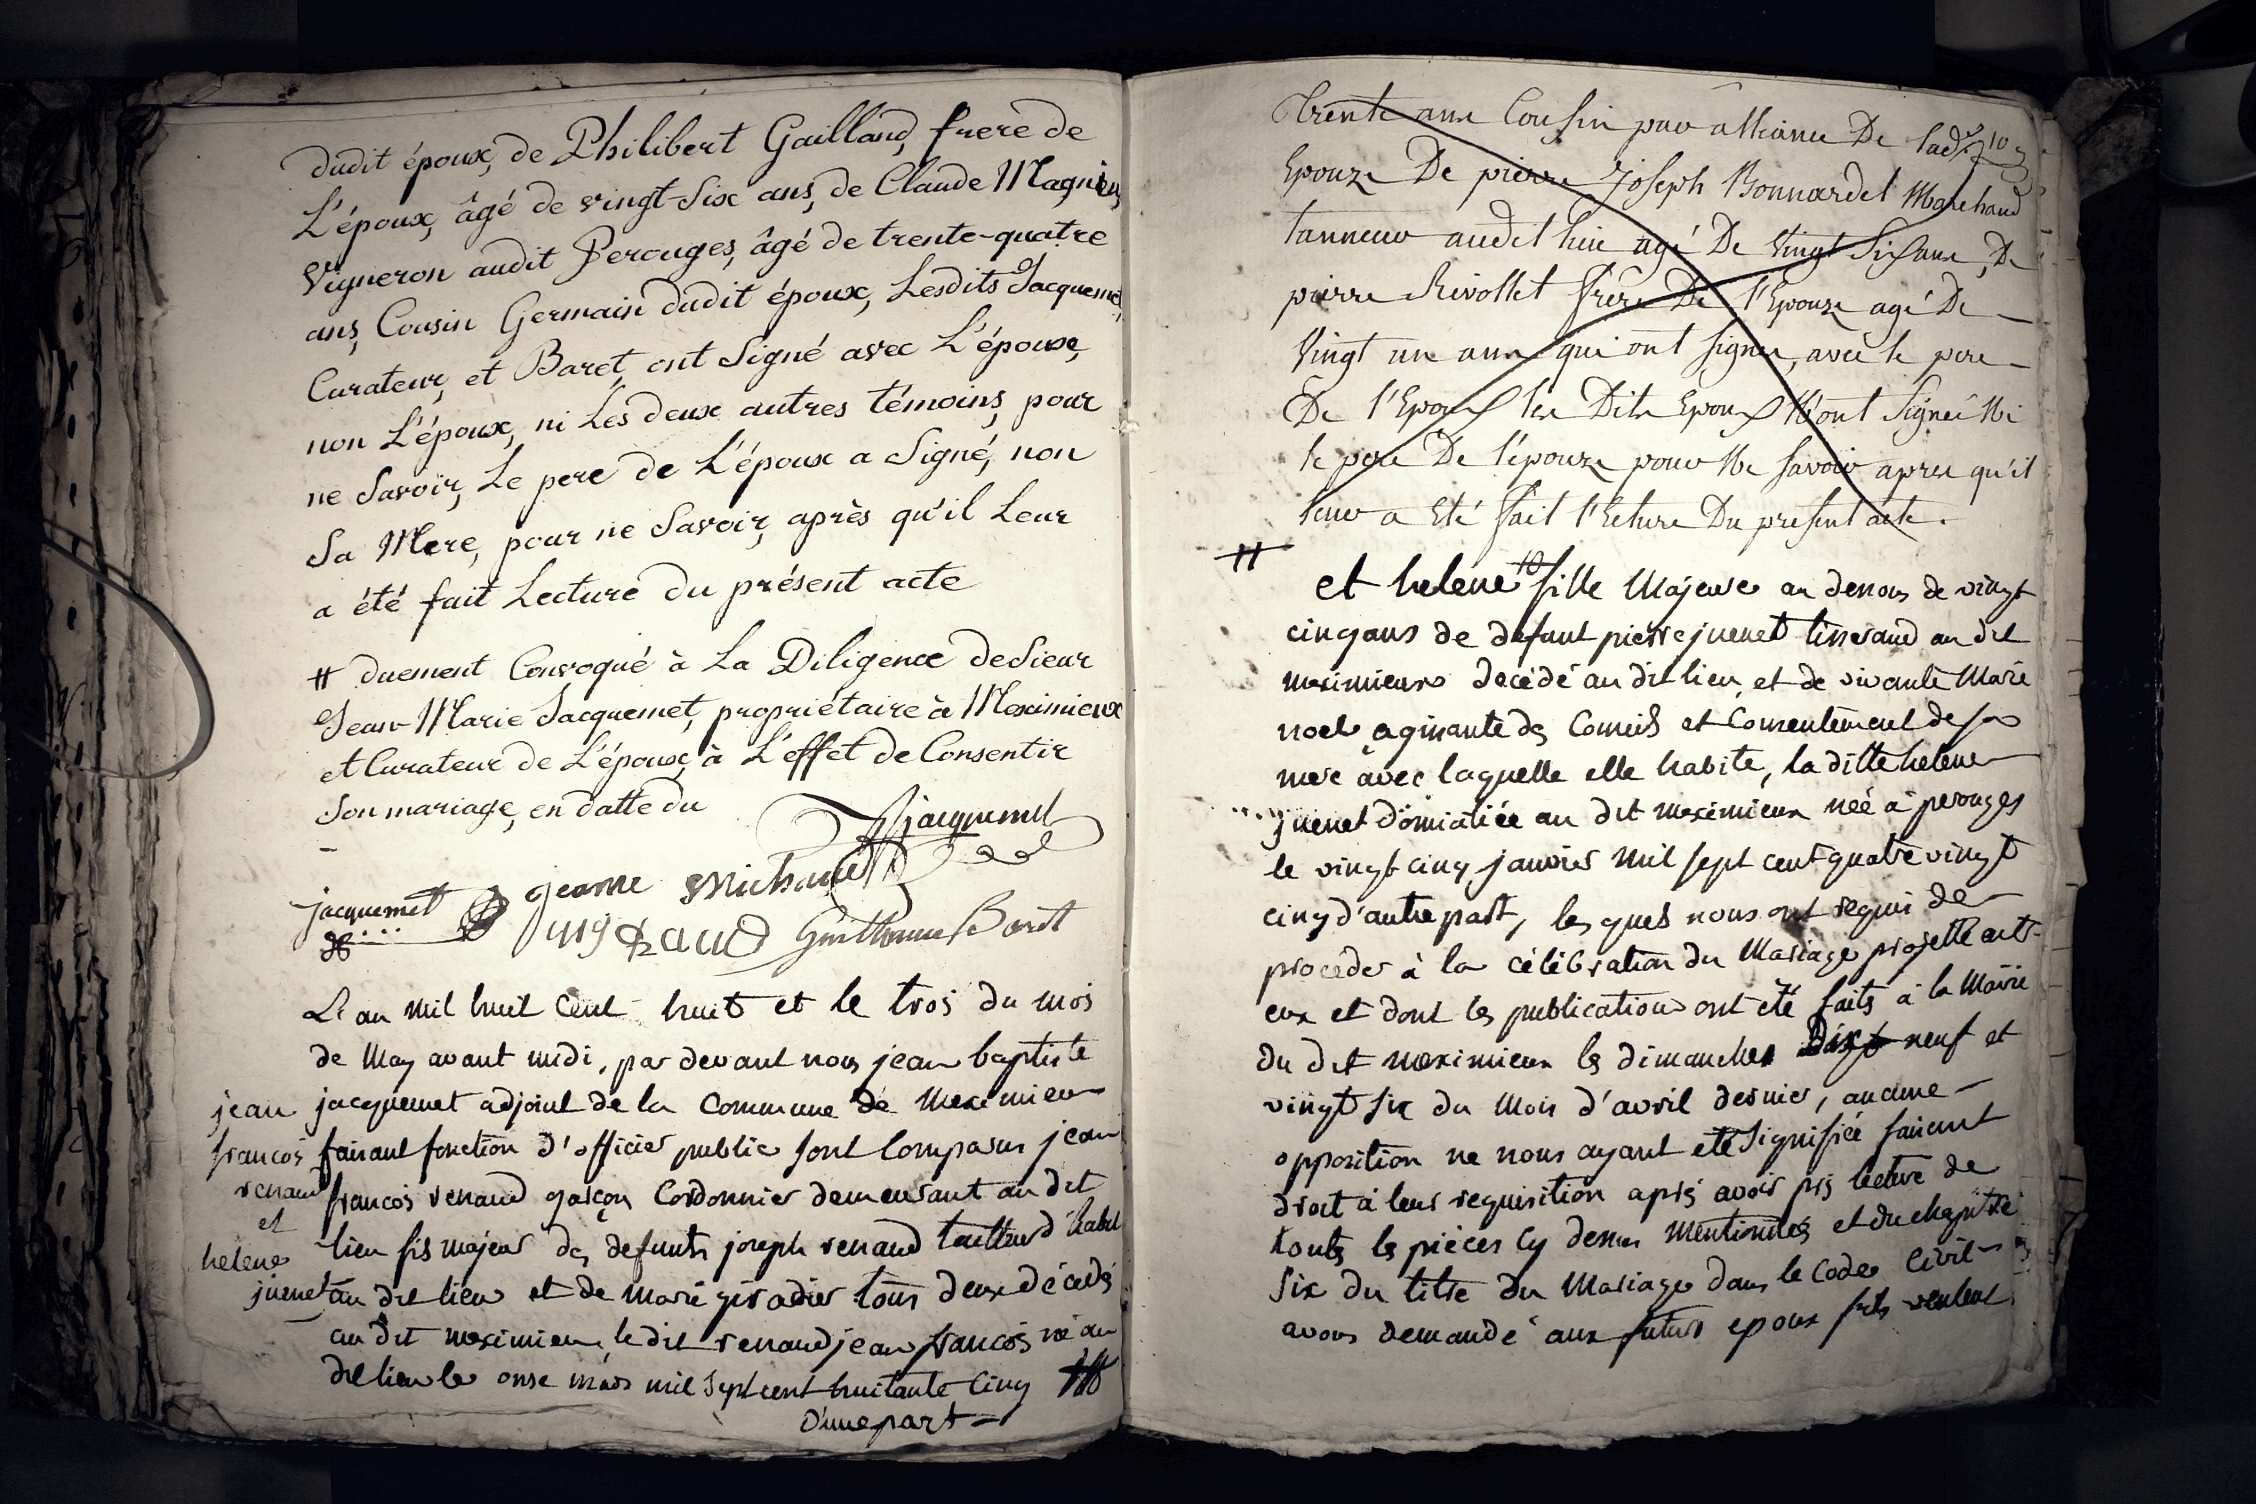 dudit époux, de Philibert Gaillard, frere de
L'époux, âgé de vingt-Six ans, de Claude Magnien,
Vigneron audit Perouges, âgé de trente-quatre
ans, Cousin Germain dudit époux, Lesdits Jacquemet,
Curateur, et Baret, ont Signé avec L'épouse,
non L'époux, ni Les deux autres témoins, pour
ne Savoir, Le pere de L'époux a Signé, non
Sa Mere, pour ne Savoir, après qu'il Leur
a été fait Lecture du présent acte
# duement Convoqué à La Diligence de Sieur
Jean-Marie Jacquemet, propriétaire à Meximieux
et Curateur de L'épouse, à L'effet de Consentir
Son mariage, en datte du
jacquemet
jacquemet jeanne Michaud
Guillaume Baret
L'an mil huit Cent huit et le trois du mois
de May avant midi, par devant nous jean baptiste
jacquemet adjoint de la Commune de Meximieu
faisant fonction d'officier public sont Comparus jean
francois renaud garçon Cordonnier demeurant au dit
lieu fis majeur des defunts joseph renaud tailleur d'habit
au dit lieu et de marie giradier tous deux décédés
au dit meximieu, le dit renaud jean francois né au
dit lieu le onse mars mil sept cent huitante Cinq #
D'une part
jean
francois
renaud
et
helene
juenet
trente ans Cousin par alliance De ladte
Epouze De pierre Joseph Bonnardel Marchand
tanneur audit lieu agé De Vingt Six ans, De
pierre Rivollet frère De l'Epouze agé De
Vingt un ans qui ont signés, avec le pere
De l'Epoux les Dits Epoux N'ont Signés Ni
le pere De l'épouze pour Ne savoir apres qu'il
leur a Eté fait l'Ecture Du present acte.
# et helene fille Majeure au dessus de vingt
cinq ans de defunt pierre juenet tisserand au dit
meximieux decédé au dit lieu, et de vivante Marie
noel agissante des Conseils et Consentement de sa
mere avec laquelle elle habite, la ditte helene
juenet domiciliée au dit meximieux née à perouges
le vingt cinq janvier mil sept cent quatre vingt
cinq d'autre part, les quels nous ont requis de
proceder à la célébration du Mariage projetté entr
eux et dont les publications ont eté faits à la Mairie
du dit meximieux les dimanches Dix neuf et
vingt six du Mois d'avril dernier, aucune
opposition ne nous ayant eté signifiée faisant
droit à leur requisition après avoir pris lecture de
touts les pièces Cy dessus mentionnés et du chapitre
six du titre du Mariage dans le Code Civil
avons demandé aux futurs epoux s'ils veulent